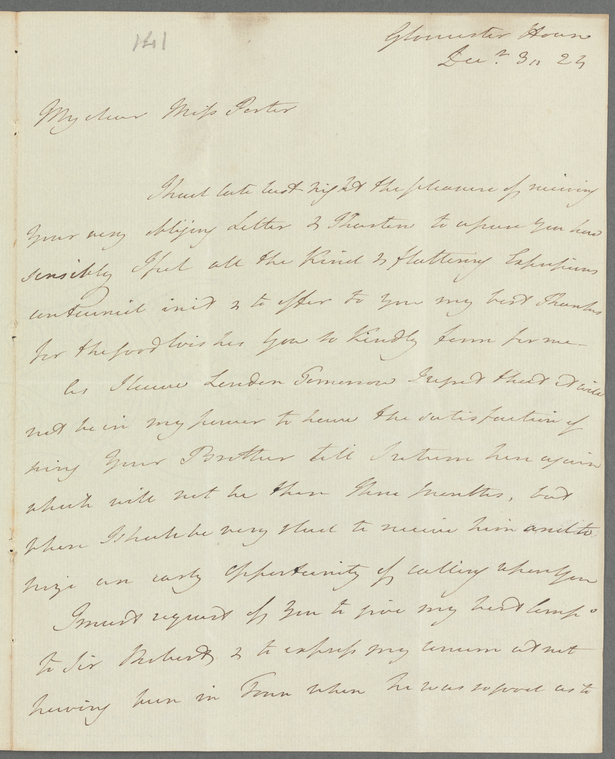 1821
Gloucester House
Decr 3, 24
My dear Miss Porter
I had late last night the pleasure of receiving
Your very obliging Letter & I hasten to assure You how
sensibly I feel all the Kind & flattering Expressions
contained in it & to offer to You my best Thanks
for the good wishes You so kindly form for me
As I leave London Tomorrow I regret that it will
not be in my power to have the satisfaction of
seeing Your Brother till I return here again
which will not be these three Months, but
when I shall be very glad to receive him and to
seize an early opportunity of calling upon You
I must request of You to give my best Compts
to Sir Robert, & to express my concern at not
having been in Town when he was so good as to